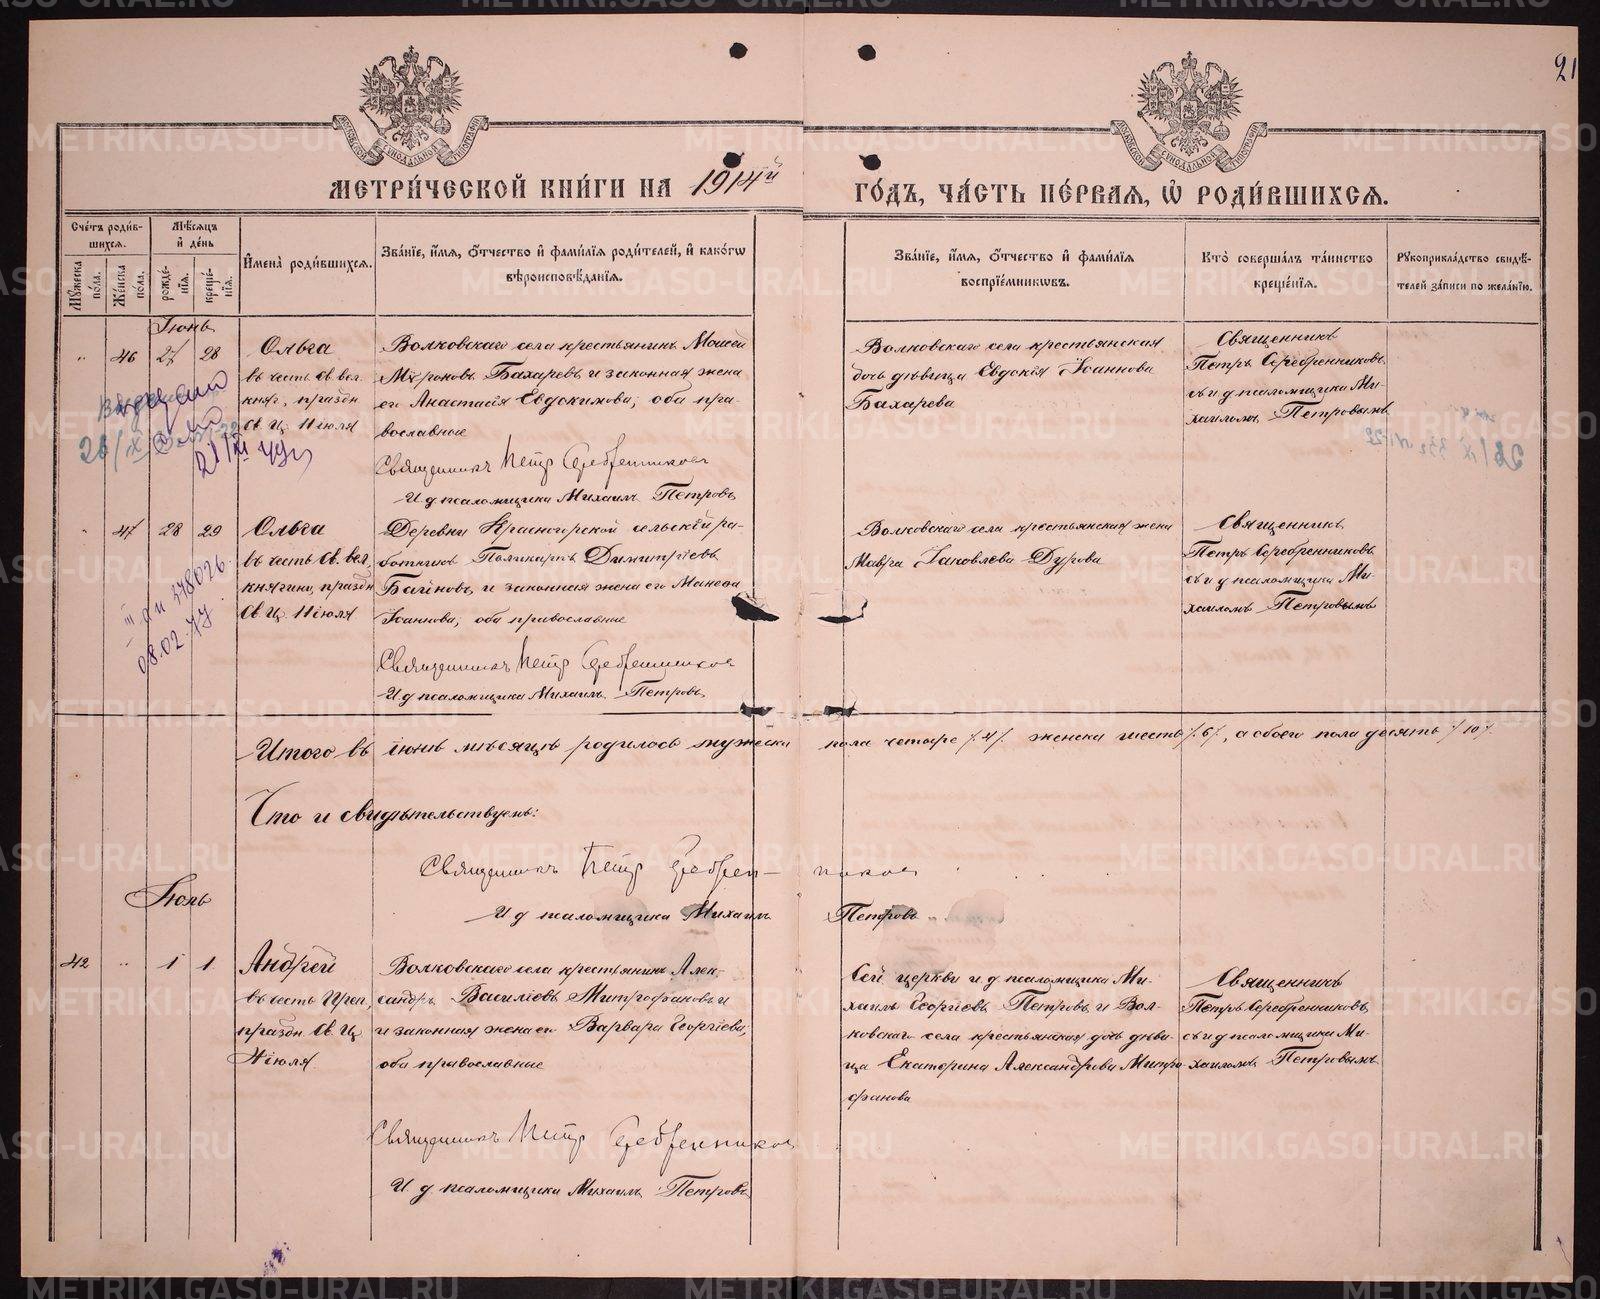 21
МОСКОВСКОЙ СѴНОДАЛЬНОЙ ТИПОГРАФІИ
МОСКОВСКОЙ СѴНОДАЛЬНОЙ ТИПОГРАФІИ
МЕТРИ́ЧЕСКОЙ КНИ́ГИ НА 1914й ГО́ДЪ, ЧА́СТЬ ПЕ́РВАЯ, Ѡ҆ РОДИ́ВШИХСѦ.
Сче́тъ роди́в-
шихсѧ.
Мѣ́сѧцъ
и҆ де́нь
Мꙋ́жеска по́ла.
Же́нска по́ла.
рожде́-
нїѧ.
креще́-
нїѧ.
И҆мена̀ роди́вшихсѧ.
Зва́нїе, и҆́мѧ, ѻ҆́тчество и҆ фами́лїѧ роди́телей, и҆ како́гѡ
вѣроисповѣ́данїѧ.
Зва́нїе, и҆́мѧ, ѻ҆́тчество и҆ фами́лїѧ
воспрїе́мникѡвъ.
Кто̀ соверша́лъ та́инство
креще́нїѧ.
Рꙋкоприкла́дство свидѣ́-
телей за́писи по жела́нїю.
Іюнь
" 46 27 28
Ольга
въ честь св. вел.
княг., праздн.
св. Ц. 11 іюля
Волковскаго села крестьянинъ Моисей
Мѵроновъ Бахаревъ и законная жена
его Анастасія Евдокимова, оба пра-
вославные
Священникъ Петр Серебренников
И д псаломщика Михаилъ Петровъ
Волковскаго села крестьянская
дочь дѣвица Евдокія Іоаннова
Бахарева
Священникъ
Петръ Серебренниковъ
съ и д псаломщика Ми-
хаиломъ Петровымъ
26/IX
21/XI
" 47 28 29
Ольга
въ честь св. вел.
княгини, праздн.
св. Ц. 11 іюля
Деревни Красногорской сельскій ра-
ботникъ Поликарпъ Димитріевъ
Байновъ и законная жена его Манефа
Іоаннова, оба православные
Священникъ Петр Серебренников
И д псаломщика Михаилъ Петровъ
Волковскаго села крестьянская жена
Мавра Іаковлева Дурова
Священникъ
Петръ Серебренниковъ
съ и д псаломщика Ми-
хаиломъ Петровымъ
378026
08.02.77
Итого въ іюнѣ мѣсяцѣ родилось мужеска пола четыре /.4/. женска шесть /.6/., а обоего пола десять /10/.
Что и свидѣтельствуемъ:
Священникъ Петр Серебренников
И д псаломщика Михаилъ Петровъ
Іюль
42 " 1 1
Андрей
въ честь преп.,
праздн. св. Ц.
4 іюля
Волковскаго села крестьянинъ Алек-
сандръ Василіевъ Митрофановъ и
и законная жена его Варвара Георгіева,
оба православные
Священникъ Петр Серебренников
И д псаломщика Михаилъ Петровъ
Сей церкви и д псаломщика Ми-
хаилъ Георгіевъ Петровъ и Вол-
ковскаго села крестьянская дочь дѣви-
ца Екатерина Александрова Митро-
фанова
Священникъ
Петръ Серебренниковъ
съ и д псаломщика Ми-
хаиломъ Петровымъ
METRIKI.GASO-URAL.RU